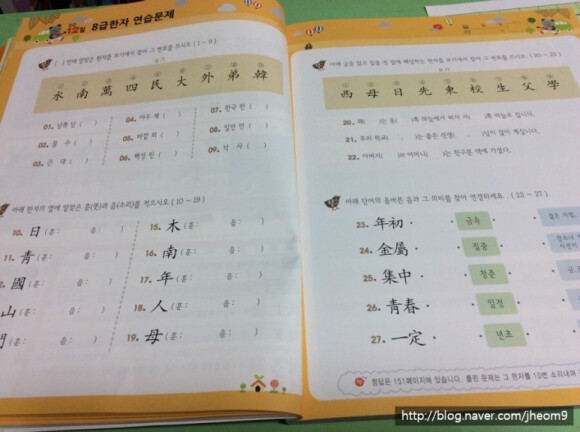 8급한자 연습문제
( ) 안에 알맞은 한자를 보기에서 찾아 그 번호를 쓰시오 ( 1 ~ 9 )
보기
水 南 萬 四 民 大 外 弟 韓
01. 남녘 남 ( )
02. 물 수 ( )
03. 큰 대 ( )
04. 아우 제 ( )
05. 바깥 외 ( )
06. 백성 민 ( )
07. 한국 한 ( )
08. 일만 만 ( )
09. 넉 사 ( )
아래 한자의 옆에 알맞은 훈(뜻)과 음(소리)를 적으시오 ( 10 ~ 19 )
10. 日 (훈: 음: )
11. 靑 (훈: 음: )
國 (훈: 음: )
山 (훈: 음: )
門 (훈: 음: )
15. 木 (훈: 음: )
16. 南 (훈: 음: )
17. 年 (훈: 음: )
18. 人 (훈: 음: )
19. 母 (훈: 음: )
아래 글을 읽고 밑줄 친 말에 해당하는 한자를 보기에서 찾아 그 번호를 쓰시오.
보기
西 母 日 先 東 校 生 父 學
20. 해( )는 동( )쪽 하늘에서 떠서 서( )쪽 하늘로 집니다.
21. 우리 학교( )는 좋은 선생( )님이 많이 계십니다.
22. 아버지( )와 어머니( )는 친구분 댁에 가셨다.
아래 단어와 올바른 음과 그 의미를 찾아 연결하세요. ( 23 ~ 27 )
23. 年初 · · 금속 ·
24. 金屬 · · 집중 ·
25. 集中 · · 청춘 ·
26. 靑春 · · 일정 ·
27. 一定 · · 년초 ·
정답은 151페이지에 있습니다. 틀린 문제는 그 한자를 10번 소리내며
http://blog.naver.com/jheom9